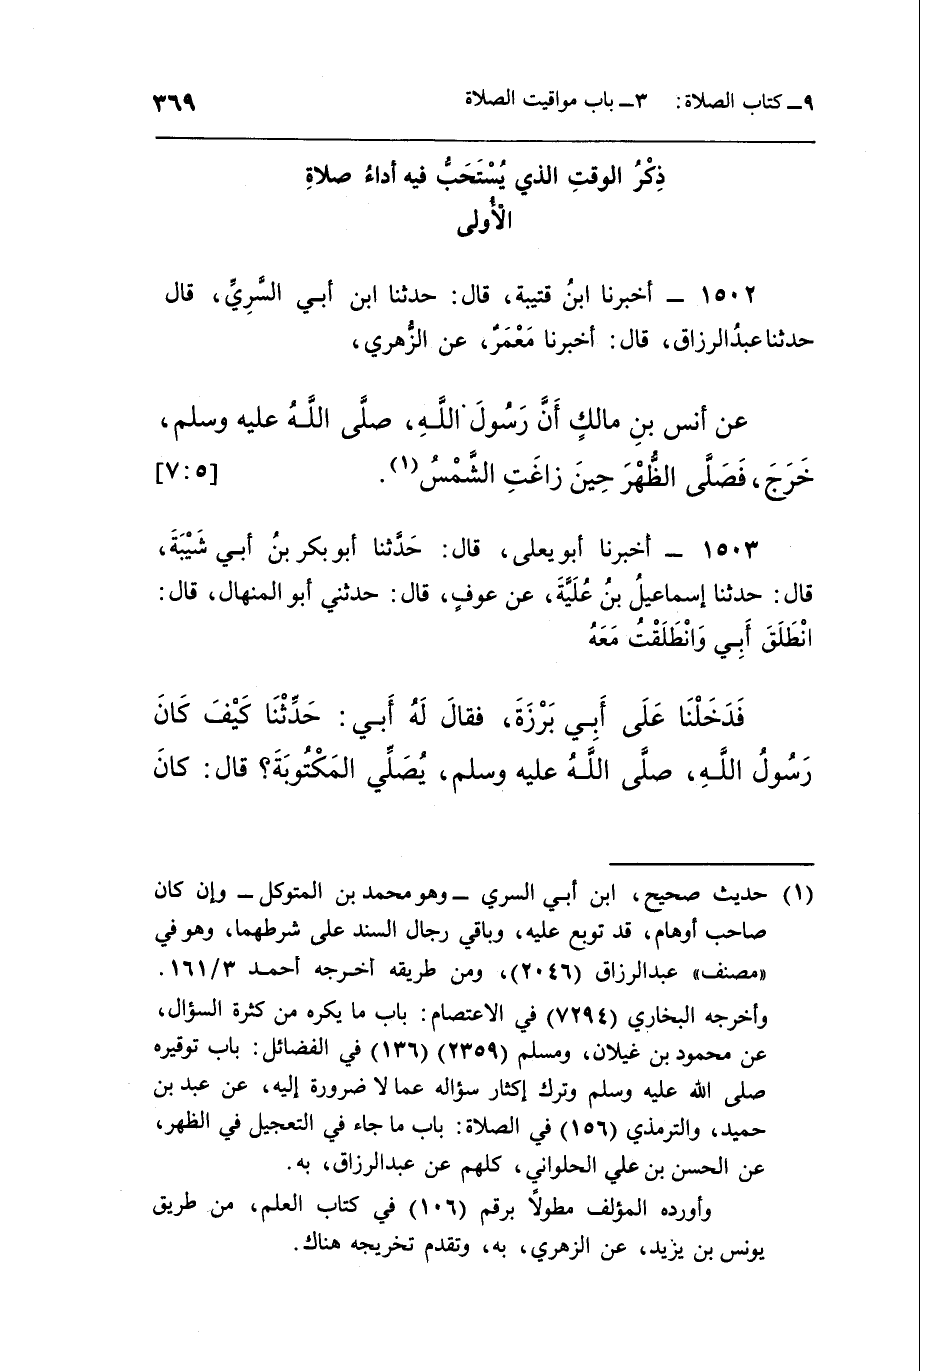 ٩ـ كتاب الصلاة: ٣ـ باب مواقيت الصلاة ٣٦٩
ذِكْرُ الوقتِ الذي يُسْتَحَبُّ فيه أداءُ صلاةِ
الْأُولى
١٥٠٢ ـ أخبرنا ابنُ قتيبة، قال: حدثنا ابن أبي السَّرِيِّ، قال
حدثنا عبدُالرزاق، قال: أخبرنا مَعْمَرٌ، عن الزُّهري،
عن أنس بنِ مالكٍ أَنَّ رَسُولَ اللَّهِ، صلَّى اللَّهُ عليه وسلم،
خَرَجَ، فَصَلَّى الظُّهْرَ حِينَ زاغَتِ الشَّمْسُ (١). [٧:٥]
١٥٠٣ ـ أخبرنا أبو يعلى، قال: حَدَّثنا أبو بكر بنُ أبي شَيْبَةَ،
قال: حدثنا إسماعيلُ بنُ عُلَيَّةَ، عن عوفٍ، قال: حدثني أبو المنهال، قال:
انْطَلَقَ أَبِي وَانْطَلَقْتُ مَعَهُ
فَدَخَلْنَا عَلَى أَبِي بَرْزَةَ، فقالَ لَهُ أَبي: حَدِّثْنَا كَيْفَ كَانَ
رَسُولُ اللَّهِ، صلَّى اللَّهُ عليه وسلم، يُصَلِّي المَكْتُوبَةَ؟ قال: كانَ
(١) حديث صحيح، ابن أبي السري ـ وهو محمد بن المتوكل ـ وإن كان
صاحب أوهام، قد توبع عليه، وباقي رجال السند على شرطهما، وهو في
«مصنف» عبدالرزاق (٢٠٤٦)، ومن طريقه أخرجه أحمد ١٦١/٣.
وأخرجه البخاري (٧٢٩٤) في الاعتصام: باب ما يكره من كثرة السؤال،
عن محمود بن غيلان، ومسلم (٢٣٥٩) (١٣٦) في الفضائل: باب توقيره
صلى الله عليه وسلم وترك إكثار سؤاله عما لا ضرورة إليه، عن عبد بن
حميد، والترمذي (١٥٦) في الصلاة: باب ما جاء في التعجيل في الظهر،
عن الحسن بن علي الحلواني، كلهم عن عبدالرزاق، به.
وأورده المؤلف مطولاً برقم (١٠٦) في كتاب العلم، من طريق
يونس بن يزيد، عن الزهري، به، وتقدم تخريجه هناك.